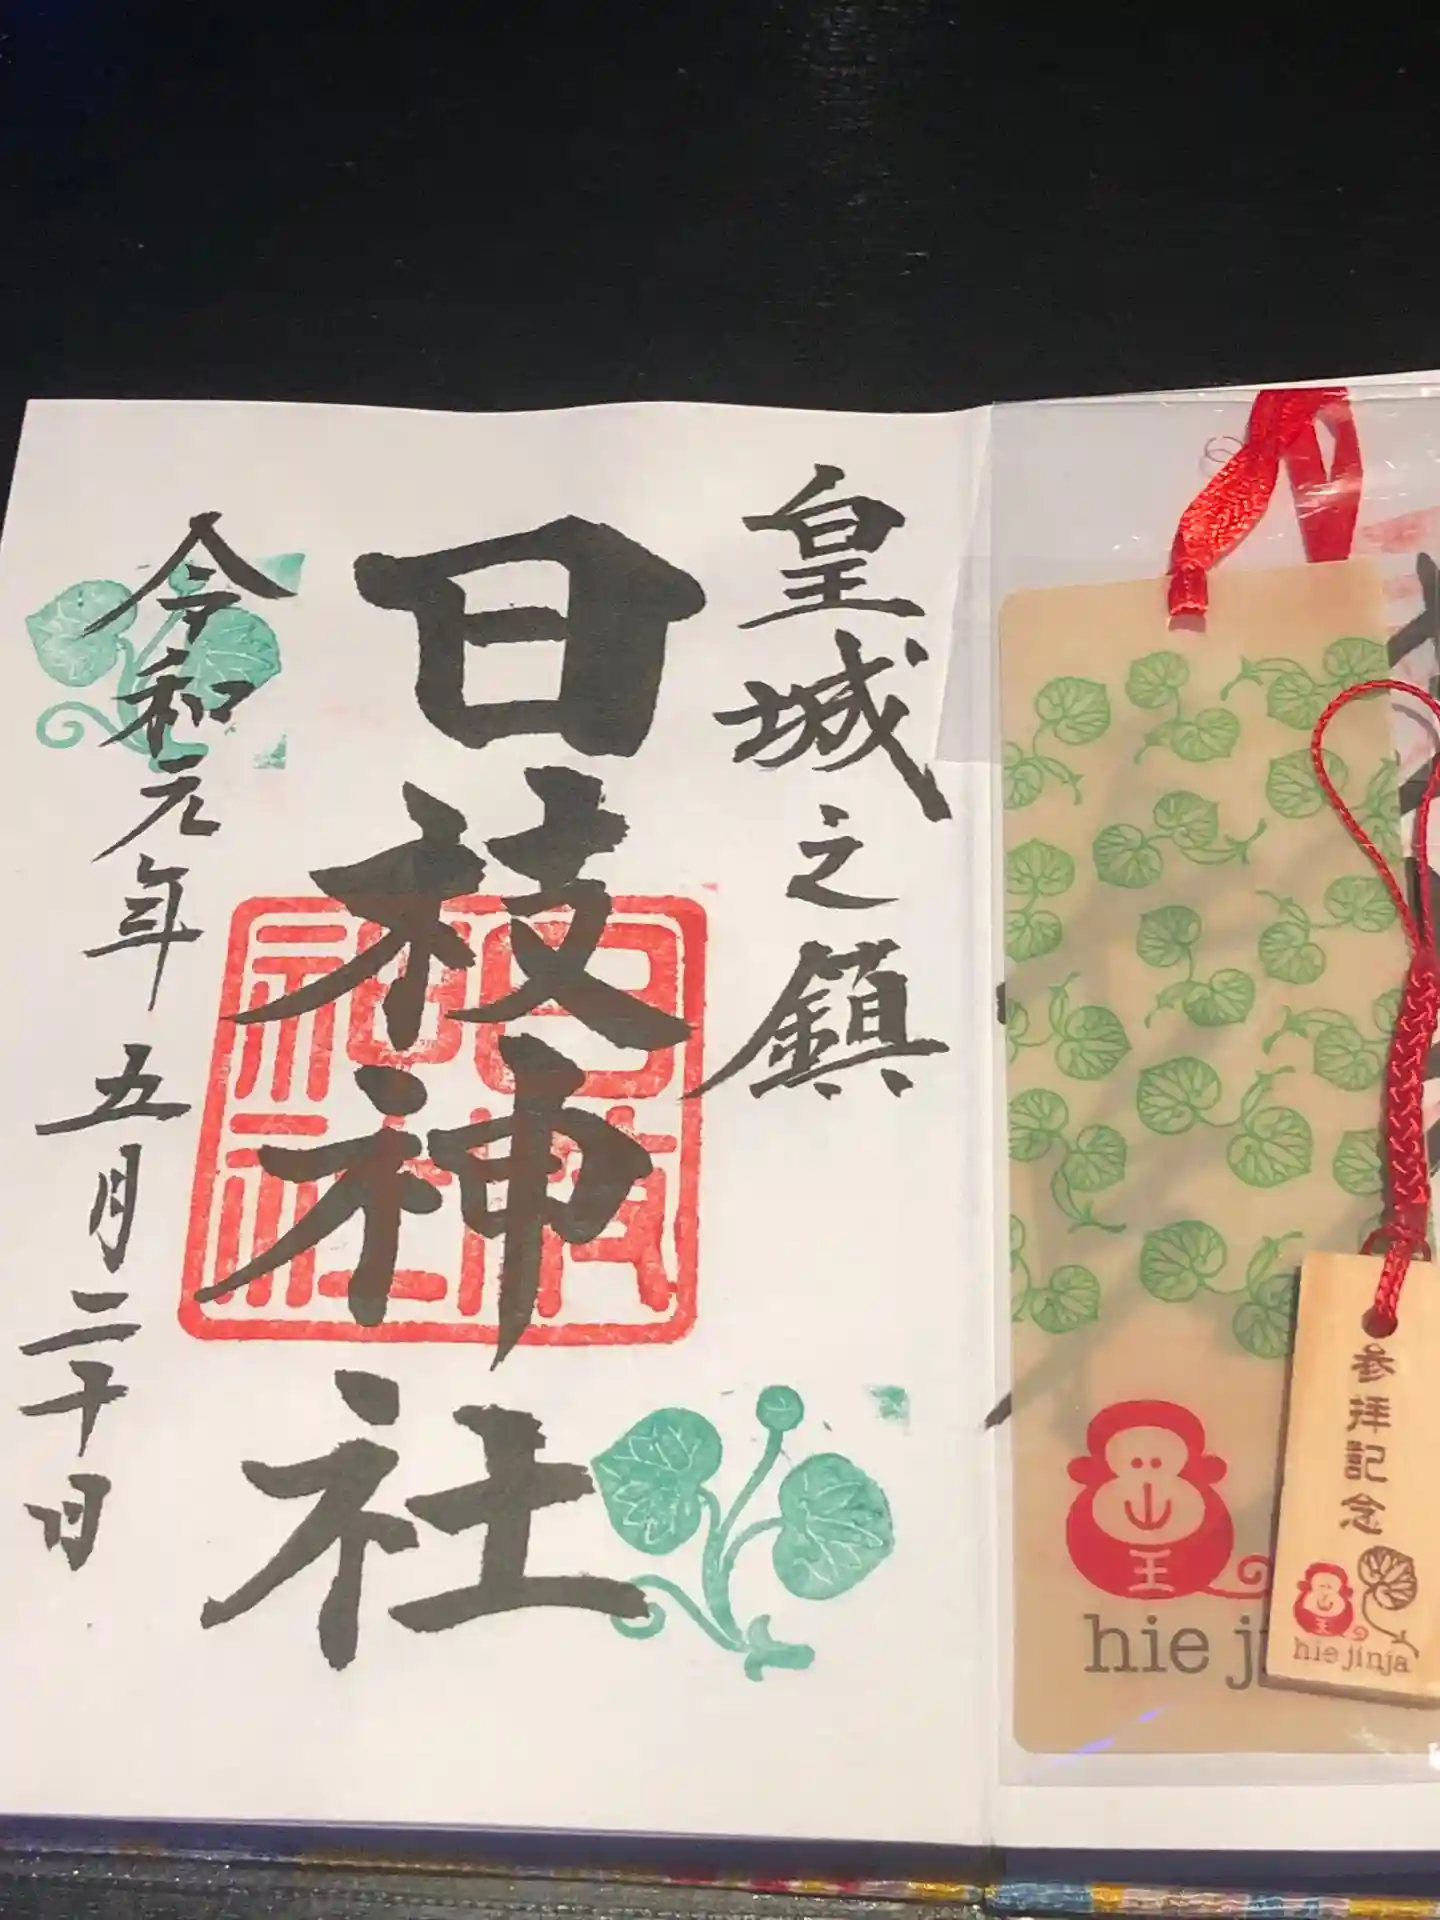 皇城之鎮
日枝神社
令和元年 五月二十日
日枝
神社
山
王
hie ji
参拝記念
山
王
hie jinja